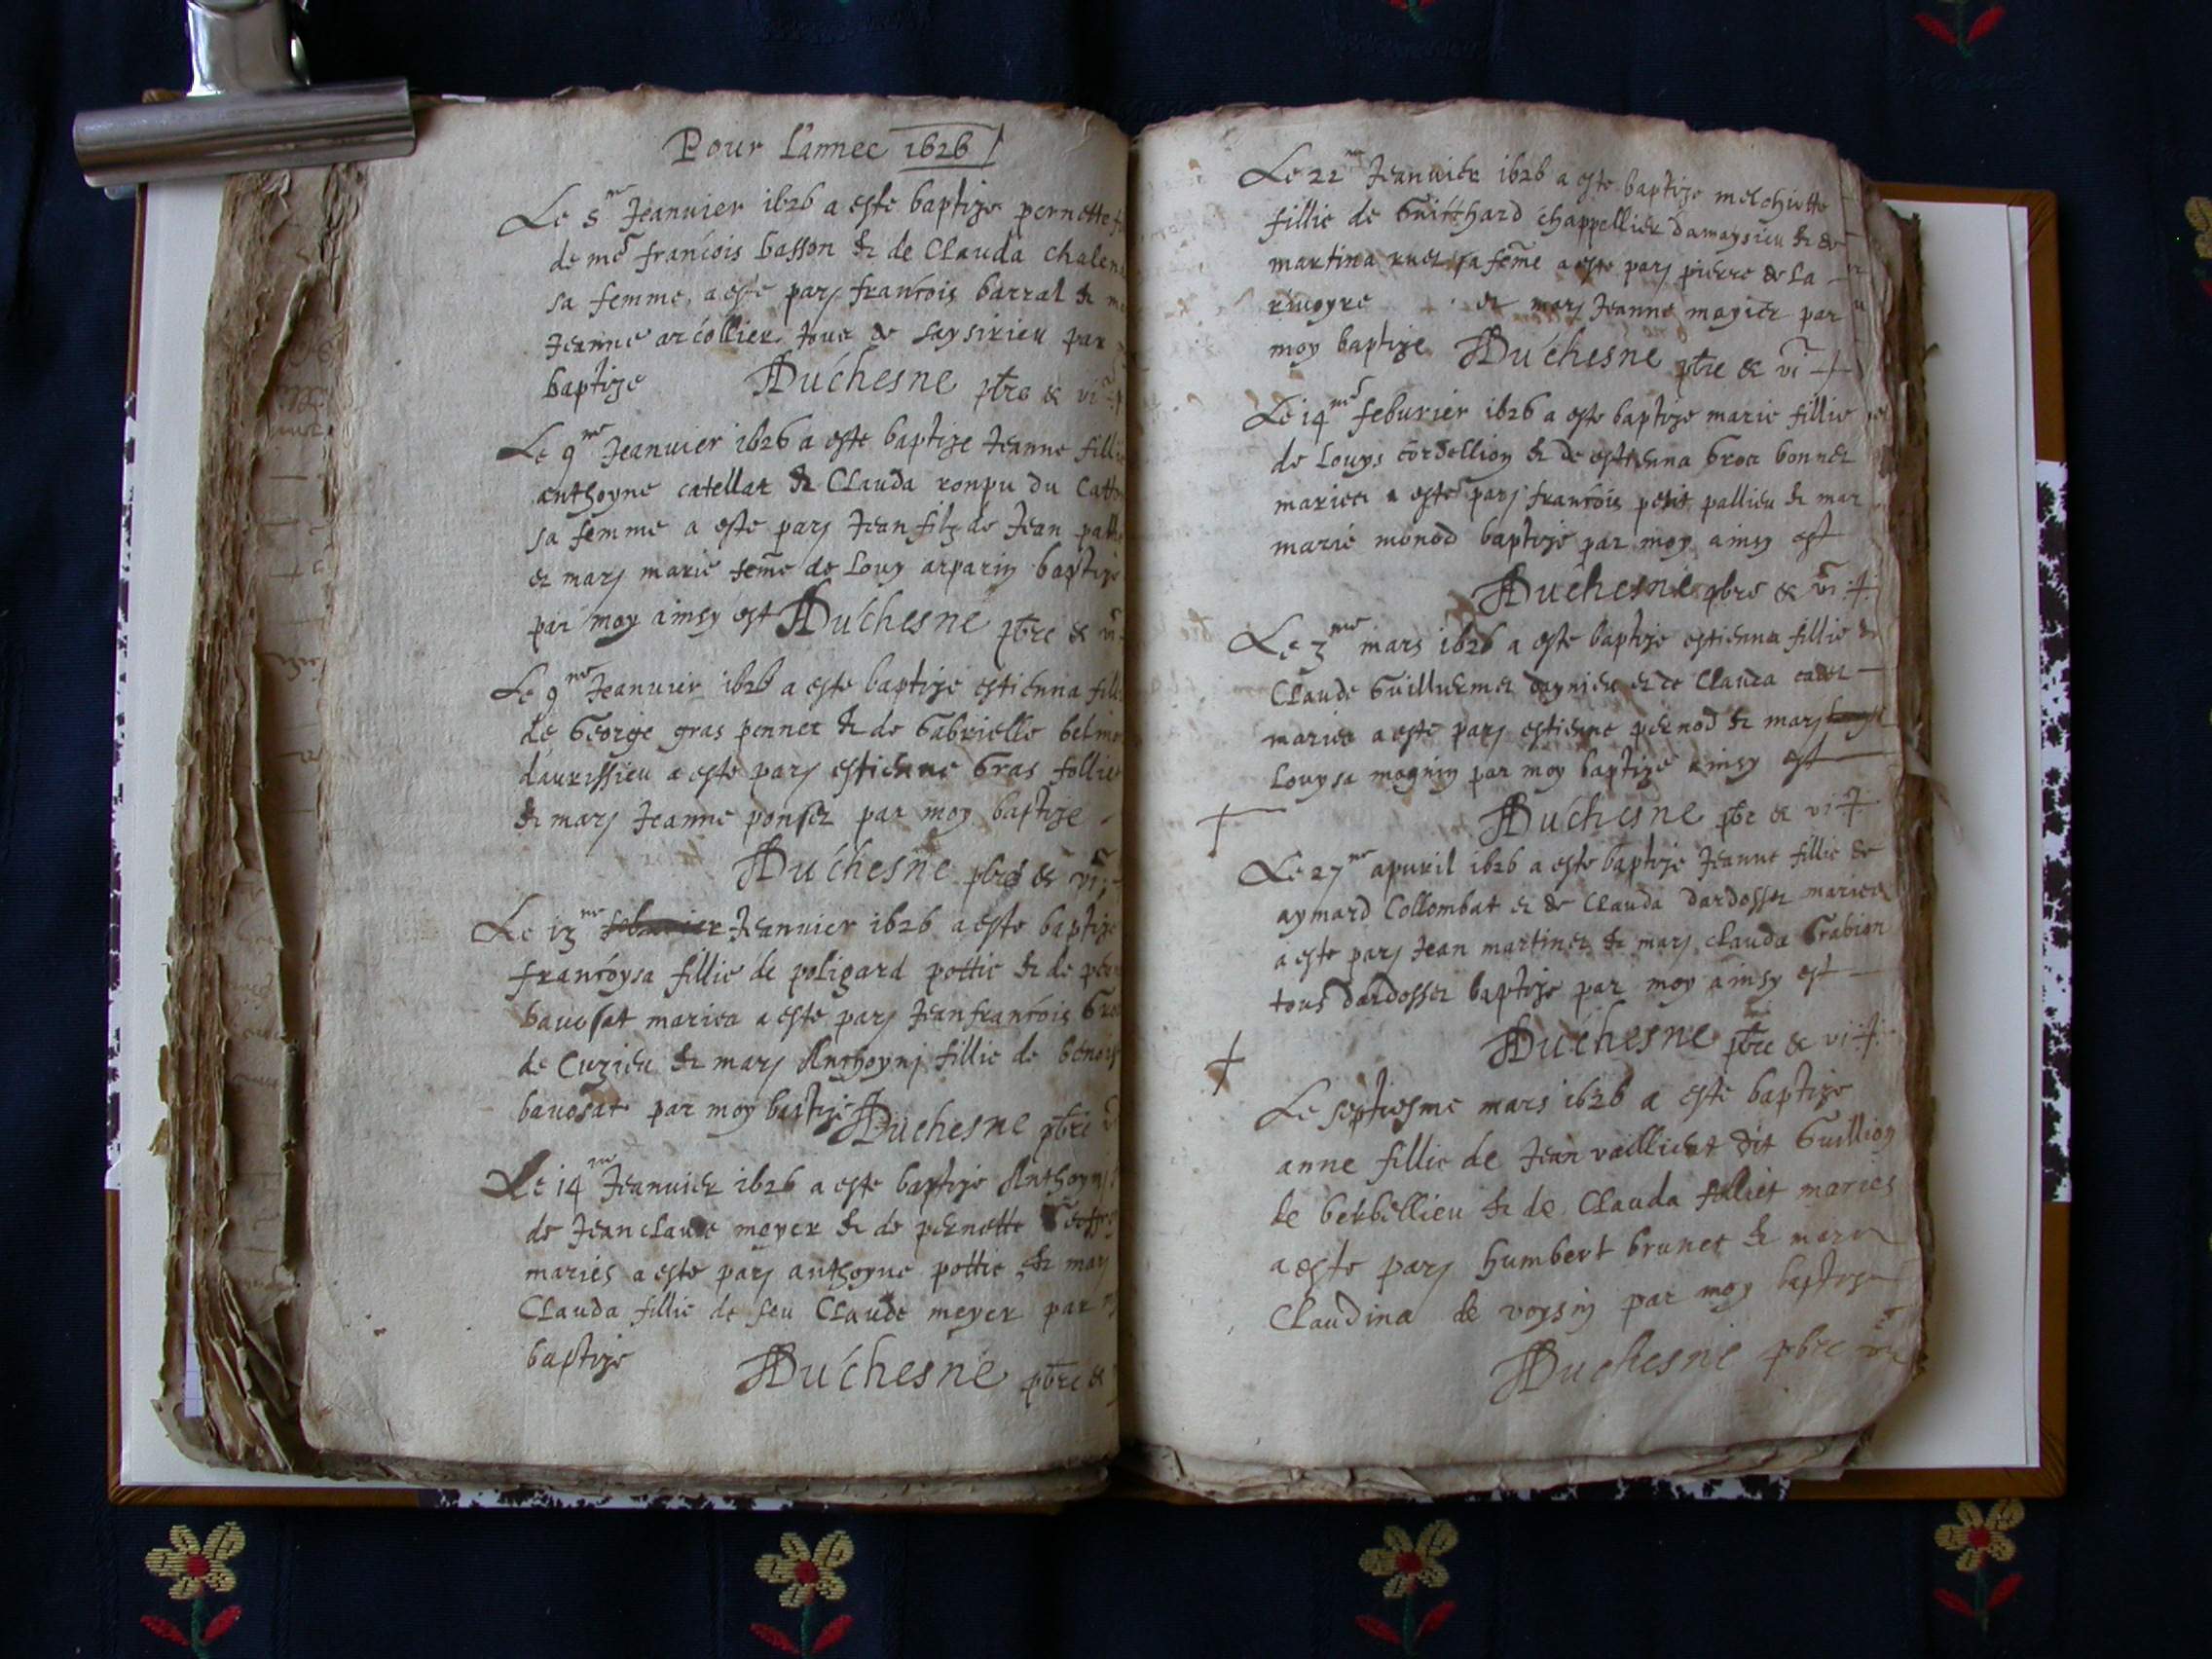 Pour Lannee 1626
Le 5me Jeanuier 1626 a este baptize pernette
de me francois basson & de Clauda
sa femme, a este parj francois barral &
Jeanne arcollier tous de saysirieu par
baptize Duchesne pbre & vi
Le 9me Jeanuier 1626 a este baptize Jeanne
anthoyne catellat & Clauda ronpu du
sa femme a este parj Jean filz de Jean
et marj marie feme de Louy arparin baptize
par moy ainsy est Duchesne pbre &
Le 9me Jeanuier 1626 a este baptize estienna
de George gras pennet & de Gabrielle
daurissieu a este parj estienne Gras
& marj Jeanne ponset par moy baptize
Duchesne pbre & vi
Le 13me Jeanuier 1626 a este baptize
francoysa fillie de poligard pottie & de
bauosat mariea a este parj Jeanfrancois
de Cuzieu & marj Anthoynj fillie de
bauosat par moy baptize Duchesne pbre
Le 14me Jeanuier 1626 a este baptize
de Jeanclaude meyer & de pernette
mariés a este parj anthoyne pottie & marj
Clauda fillie de feu Claude meyer par
baptize Duchesne pbre &
Le 22me Jeanuier 1626 a este baptize melchiotte
fillie de Guitthard chappellier damaysieu & de
martina ruet sa feme a este parj pierre de La
riuoyre et marj Jeanne magict par
moy baptize Duchesne pbre & vi
Le 14me feburier 1626 a este baptize marie fillie
de Louys cordellion & de estienna broa bonnet
mariea a este parj francois petit pallieu & mar
marie monod baptize par moy ainsy est
Duchesne pbre & vi
Le 3me mars 1626 a este baptize estienna fillie de
Claude Guillermet daynieu et de Clauda
mariea a este parj estienne pernod & marj
Louysa magnin par moy baptize ainsy est
Duchesne pbre & vi
Le 27me apuril 1626 a este baptize Jeanne fillie de
aymard Collombat et de Clauda dardosset mariea
a este parj Jean martinet & marj clauda Grabion
tous dardosset baptize par moy ainsy est
Duchesne pbre & vi
Le septiesme mars 1626 a este baptize
anne fillie de Jean vaillient dit Guillion
de berbellieu & de Clauda mariés
a este parj humbert brunet & mara
Claudina de voysin par moy baptize
Duchesne pbre